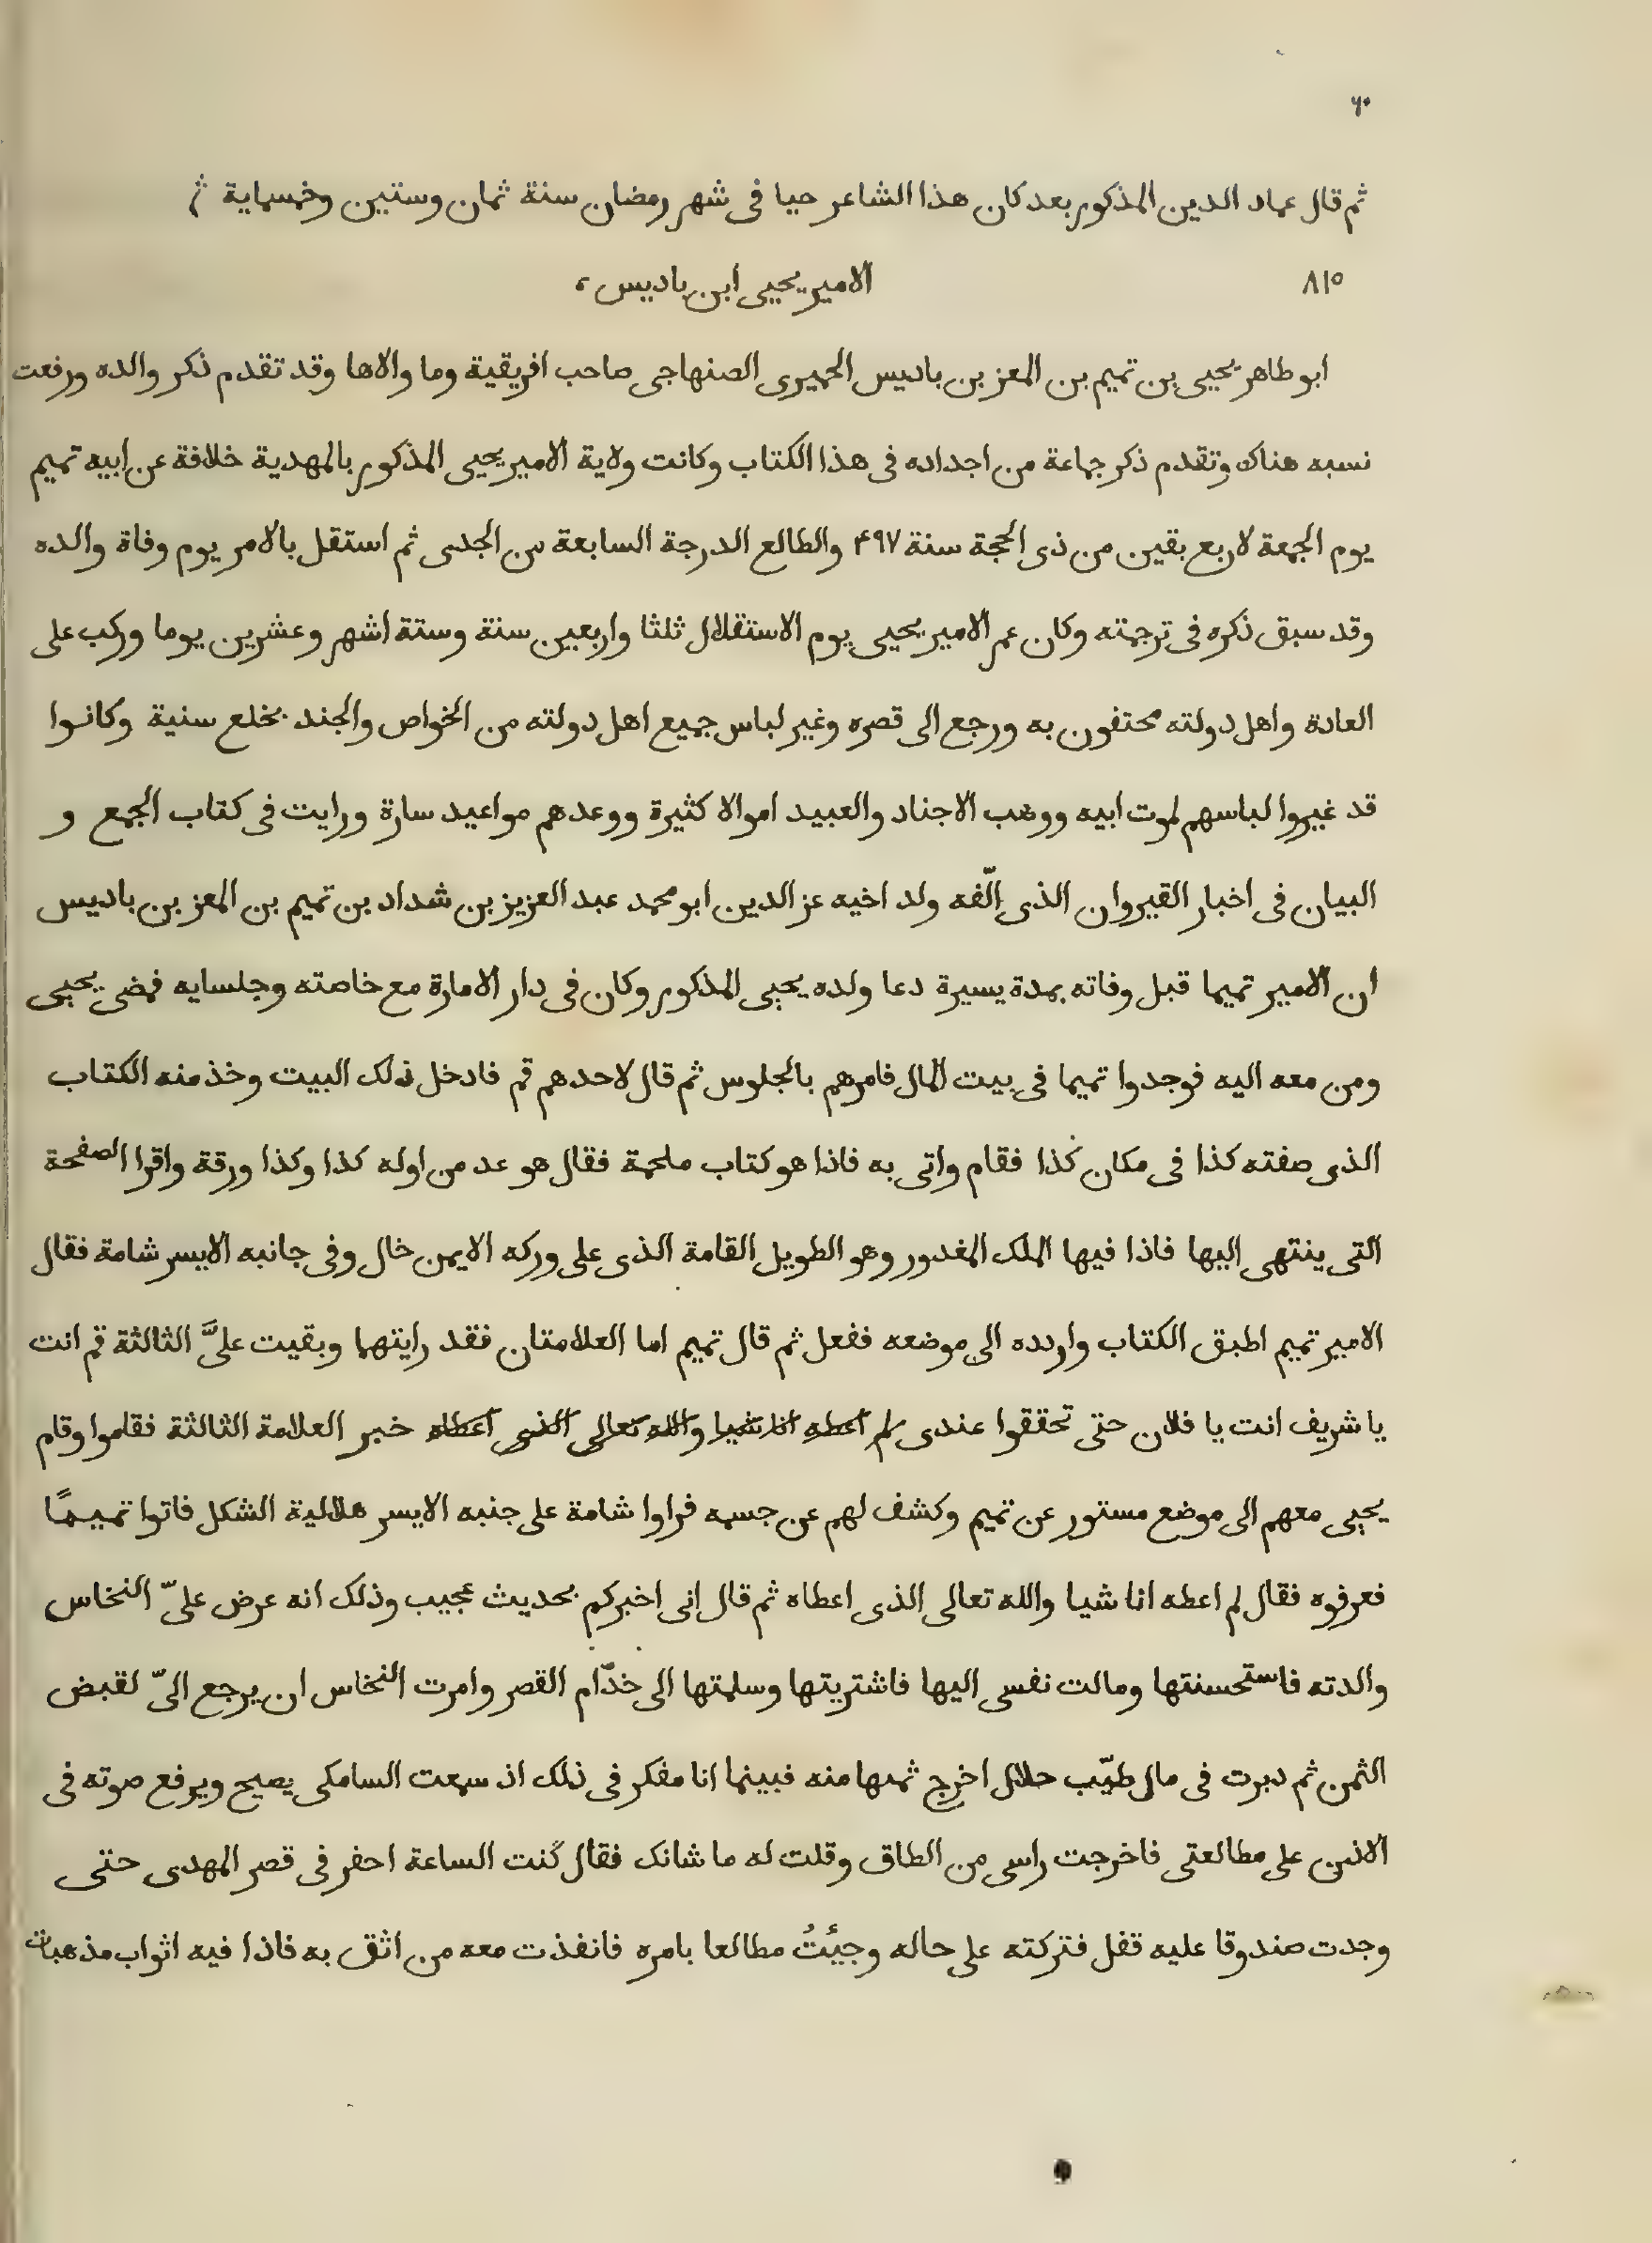 ٦٠
ثم قال عماد الدين المذكور بعد كان هذا الشاعر حيا فى شهر رمضان سنة ثمان وستين وخمساية
٨١٥ الامير يحيى ابن باديس
ابو طاهر يحيى بن تميم بن المعز بن باديس الحميرى الصنهاجى صاحب افريقية وما والاها وقد تقدم ذكر والده ورفعت
نسبه هناك وتقدم ذكر جماعة من اجداده فى هذا الكتاب وكانت ولاية الامير يحيى المذكور بالمهدية خلافة عن ابيه تميم
يوم الجمعة لاربع بقين من ذى الحجة سنة ۴٩٧ والطالع الدرجة السابعة من الجدى ثم استقل بالامر يوم وفاة والده
وقد سبق ذكره فى ترجمته وكان عمر الامير يحيى يوم الاستقلال ثلثا واربعين سنة وستة اشهر وعشرين يوما وركب على
العادة واهل دولته محتفون به ورجع الى قصره وغير لباس جميع اهل دولته من الخواص والجند بخلع سنية وكانوا
قد غيروا لباسهم لموت ابيه ووهب الاجناد والعبيد اموالا كثيرة ووعدهم مواعيد سارة ورايت فى كتاب الجمع و
البيان فى اخبار القيروان الذى الّفه ولد اخيه عز الدين ابو محمد عبد العزيز بن شداد بن تميم بن المعز بن باديس
ان الامير تميما قبل وفاته بمدة يسيرة دعا ولده يحيى المذكور وكان فى دار الامارة مع خاصته وجلسايه فمضى يحيى
ومن معه اليه فوجدوا تميما فى بيت المال فامرهم بالجلوس ثم قال لاحدهم قم فادخل ذلك البيت وخذ منه الكتاب
الذى صفته كذا فى مكان كذا فقام واتى به فاذا هو كتاب ملحمة فقال هو عد من اوله كذا وكذا ورقة واقرا الصفحة
التى ينتهى اليها فاذا فيها الملك المغدور وهو الطويل القامة الذى على وركه الايمن خال وفى جانبه الايسر شامة فقال
الامير تميم اطبق الكتاب واردده الى موضعه ففعل ثم قال تميم اما العلامتان فقد رايتهما وبقيت علىَّ الثالثة قم انت
يا شريف انت يا فلان حتى تحققوا عندى لم اعطه انا شيا والله تعالى الذى اعطاه خبر العلامة الثالثة فقاموا وقام
يحيى معهم الى موضع مستور عن تميم وكشف لهم عن جسمه فراوا شامة على جنبه الايسر هلالية الشكل فاتوا تميمًا
فعرفوه فقال لم اعطه انا شيا والله تعالى الذى اعطاه ثم قال انى اخبركم بحديث عجيب وذلك انه عرض علىّ النخاس
والدته فاستحسنتها ومالت نفسى اليها فاشتريتها وسلمتها الى خدّام القصر وامرت النخاس ان يرجع الىّ لقبض
الثمن ثم دبرت فى مال طيّب حلال اخرج ثمنها منه فبينما انا مفكر فى ذلك اذ سمعت السامكى يصيح ويرفع صوته فى
الاذن على مطالعتى فاخرجت راسى من الطاق وقلت له ما شانك فقال كنت الساعة احفر فى قصر المهدى حتى
وجدت صندوقا عليه قفل فتركته على حاله وجئتُ مطالعا بامره فانفذت معه من اثق به فاذا فيه اثواب مذهبات